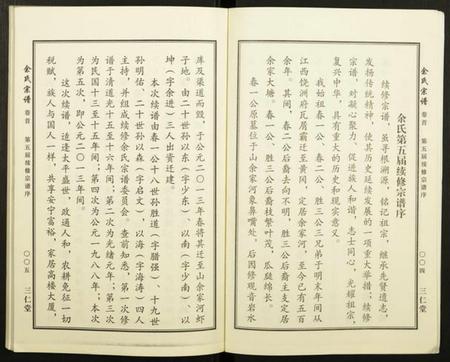 余氏宗谱 卷首 第五届续修宗谱序
〇〇四 三仁堂
余氏第五届续修宗谱序
续修宗谱，虽寻根溯源，铭记祖宗，继承先贤遗志，
发扬传统精神，使其历史延续发展的一项重大举措；续修
宗谱，对凝心聚力，促进族人和谐，志士同心，光耀祖宗，
复兴中华，具有重大的历史和现实意义。
我始祖春一公、春二公、胜三公三兄弟于明末年间从
江西饶洲府瓦屑霸迁至黄冈，定居余家河，至今已有五百
余年。其间，春二公后裔去向不明，胜三公后裔主支定居
余家大塘。春一公、胜三公后裔枝繁叶茂，瓜瓞绵长。
春一公原墓位于山余家河象鼻嘴处，后因修观音岩水
库及渠道而毁，于公元二〇一三年春将其迁至山余家河虾
子地。由二十世孙以东（字少东）、以南（字少南）、以
坤（字余进）三人出资迁建。
本次续谱由春一公十八世孙胜道（字腊强）、十九世
孙明佑、二十世孙以森（字启文）、以海（字海涛）四人
主持，并组成续修余氏宗谱委员会。查前知悉，第一次修
谱于清道光十五至十六年间；第二次为光绪元年；第三次
为民国十三至十五年间；第四次为公元一九八八年；本次
为第五次，即公元二〇一三年间。
这次续谱，适逢太平盛世，政通人和，农耕免征一切
税赋，族人与国人一样，共享安宁富裕，家居高楼大厦，
余氏宗谱 卷首 第五届续修宗谱序
〇〇五 三仁堂